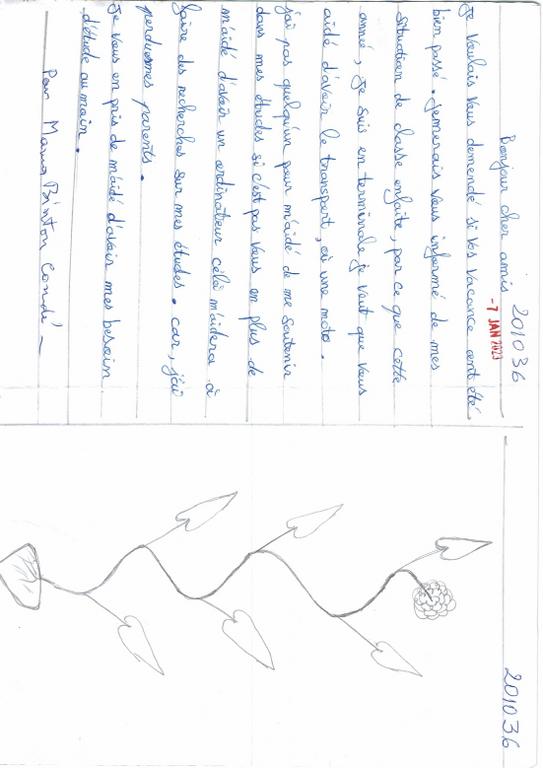 201036
Bonjour cher amis
-7 JAN 2023
Je voulais vous demendé si vos vacance ont été
bien passé. Jemerais vous informé de mes
situation de classe enfaite, par ce que cette
anné, je suis en terminale je veut que vous
aidé d'avoir le transport, où une moto.
j'ai pas quelqu'un pour m'aidé de me soutenir
dans mes études si c'est pas vous en plus de
m'aidé d'avoir un ordinateur célà m'aidera à
faire des recherches sur mes études. car, j'ai
perdu mes parents.
Je vous en pris de m'aidé d'avoir mes besoin
d'étude au main.
Par Mama Binton Condé
201036